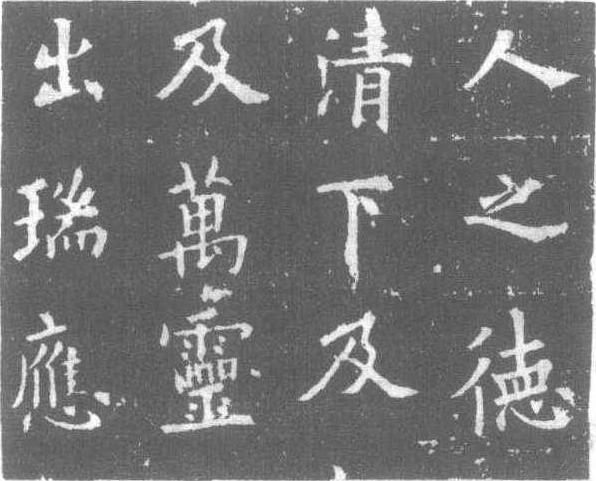 人之德
清下及
及萬靈
出瑞應